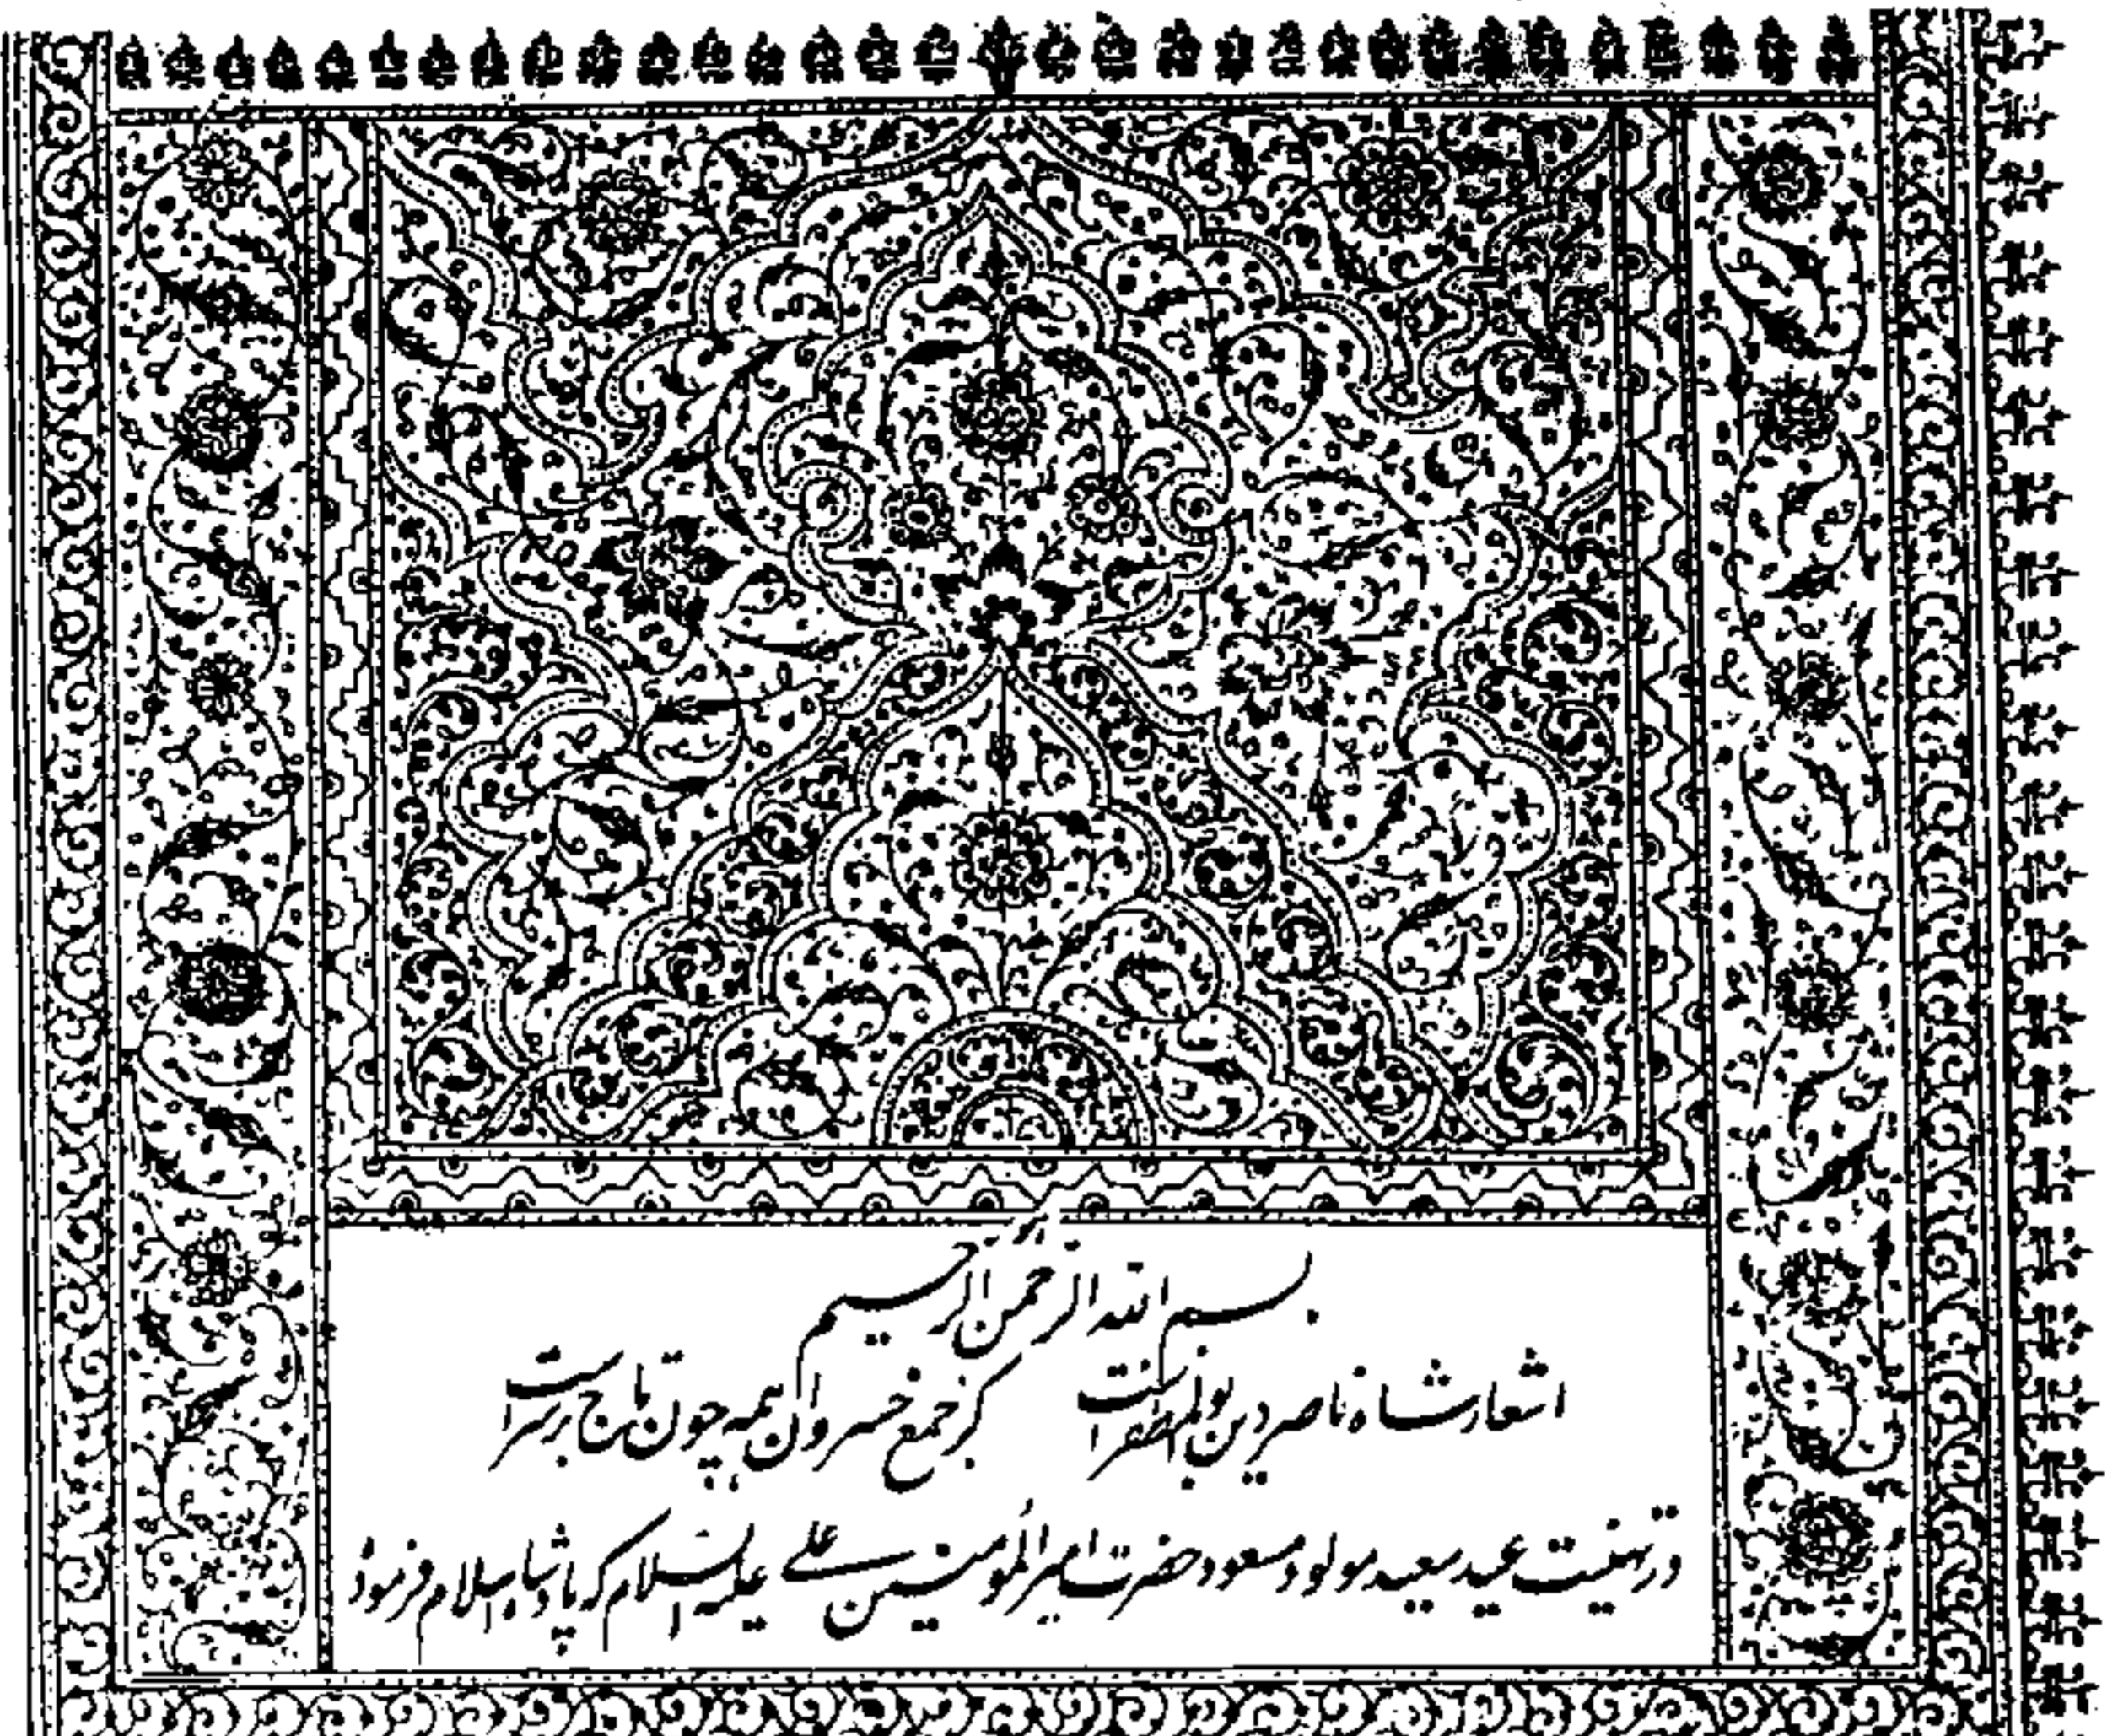 بسم الله الرحمن الرحیم
اشعار شاه ناصر دین بوالمظفر است کز جمع خسروان همه چون تاج بر سر است
در تهنیت عید سعید مولود مسعود حضرت امیرالمؤمنین علی علیه السلام که پادشاه اسلام فرموده